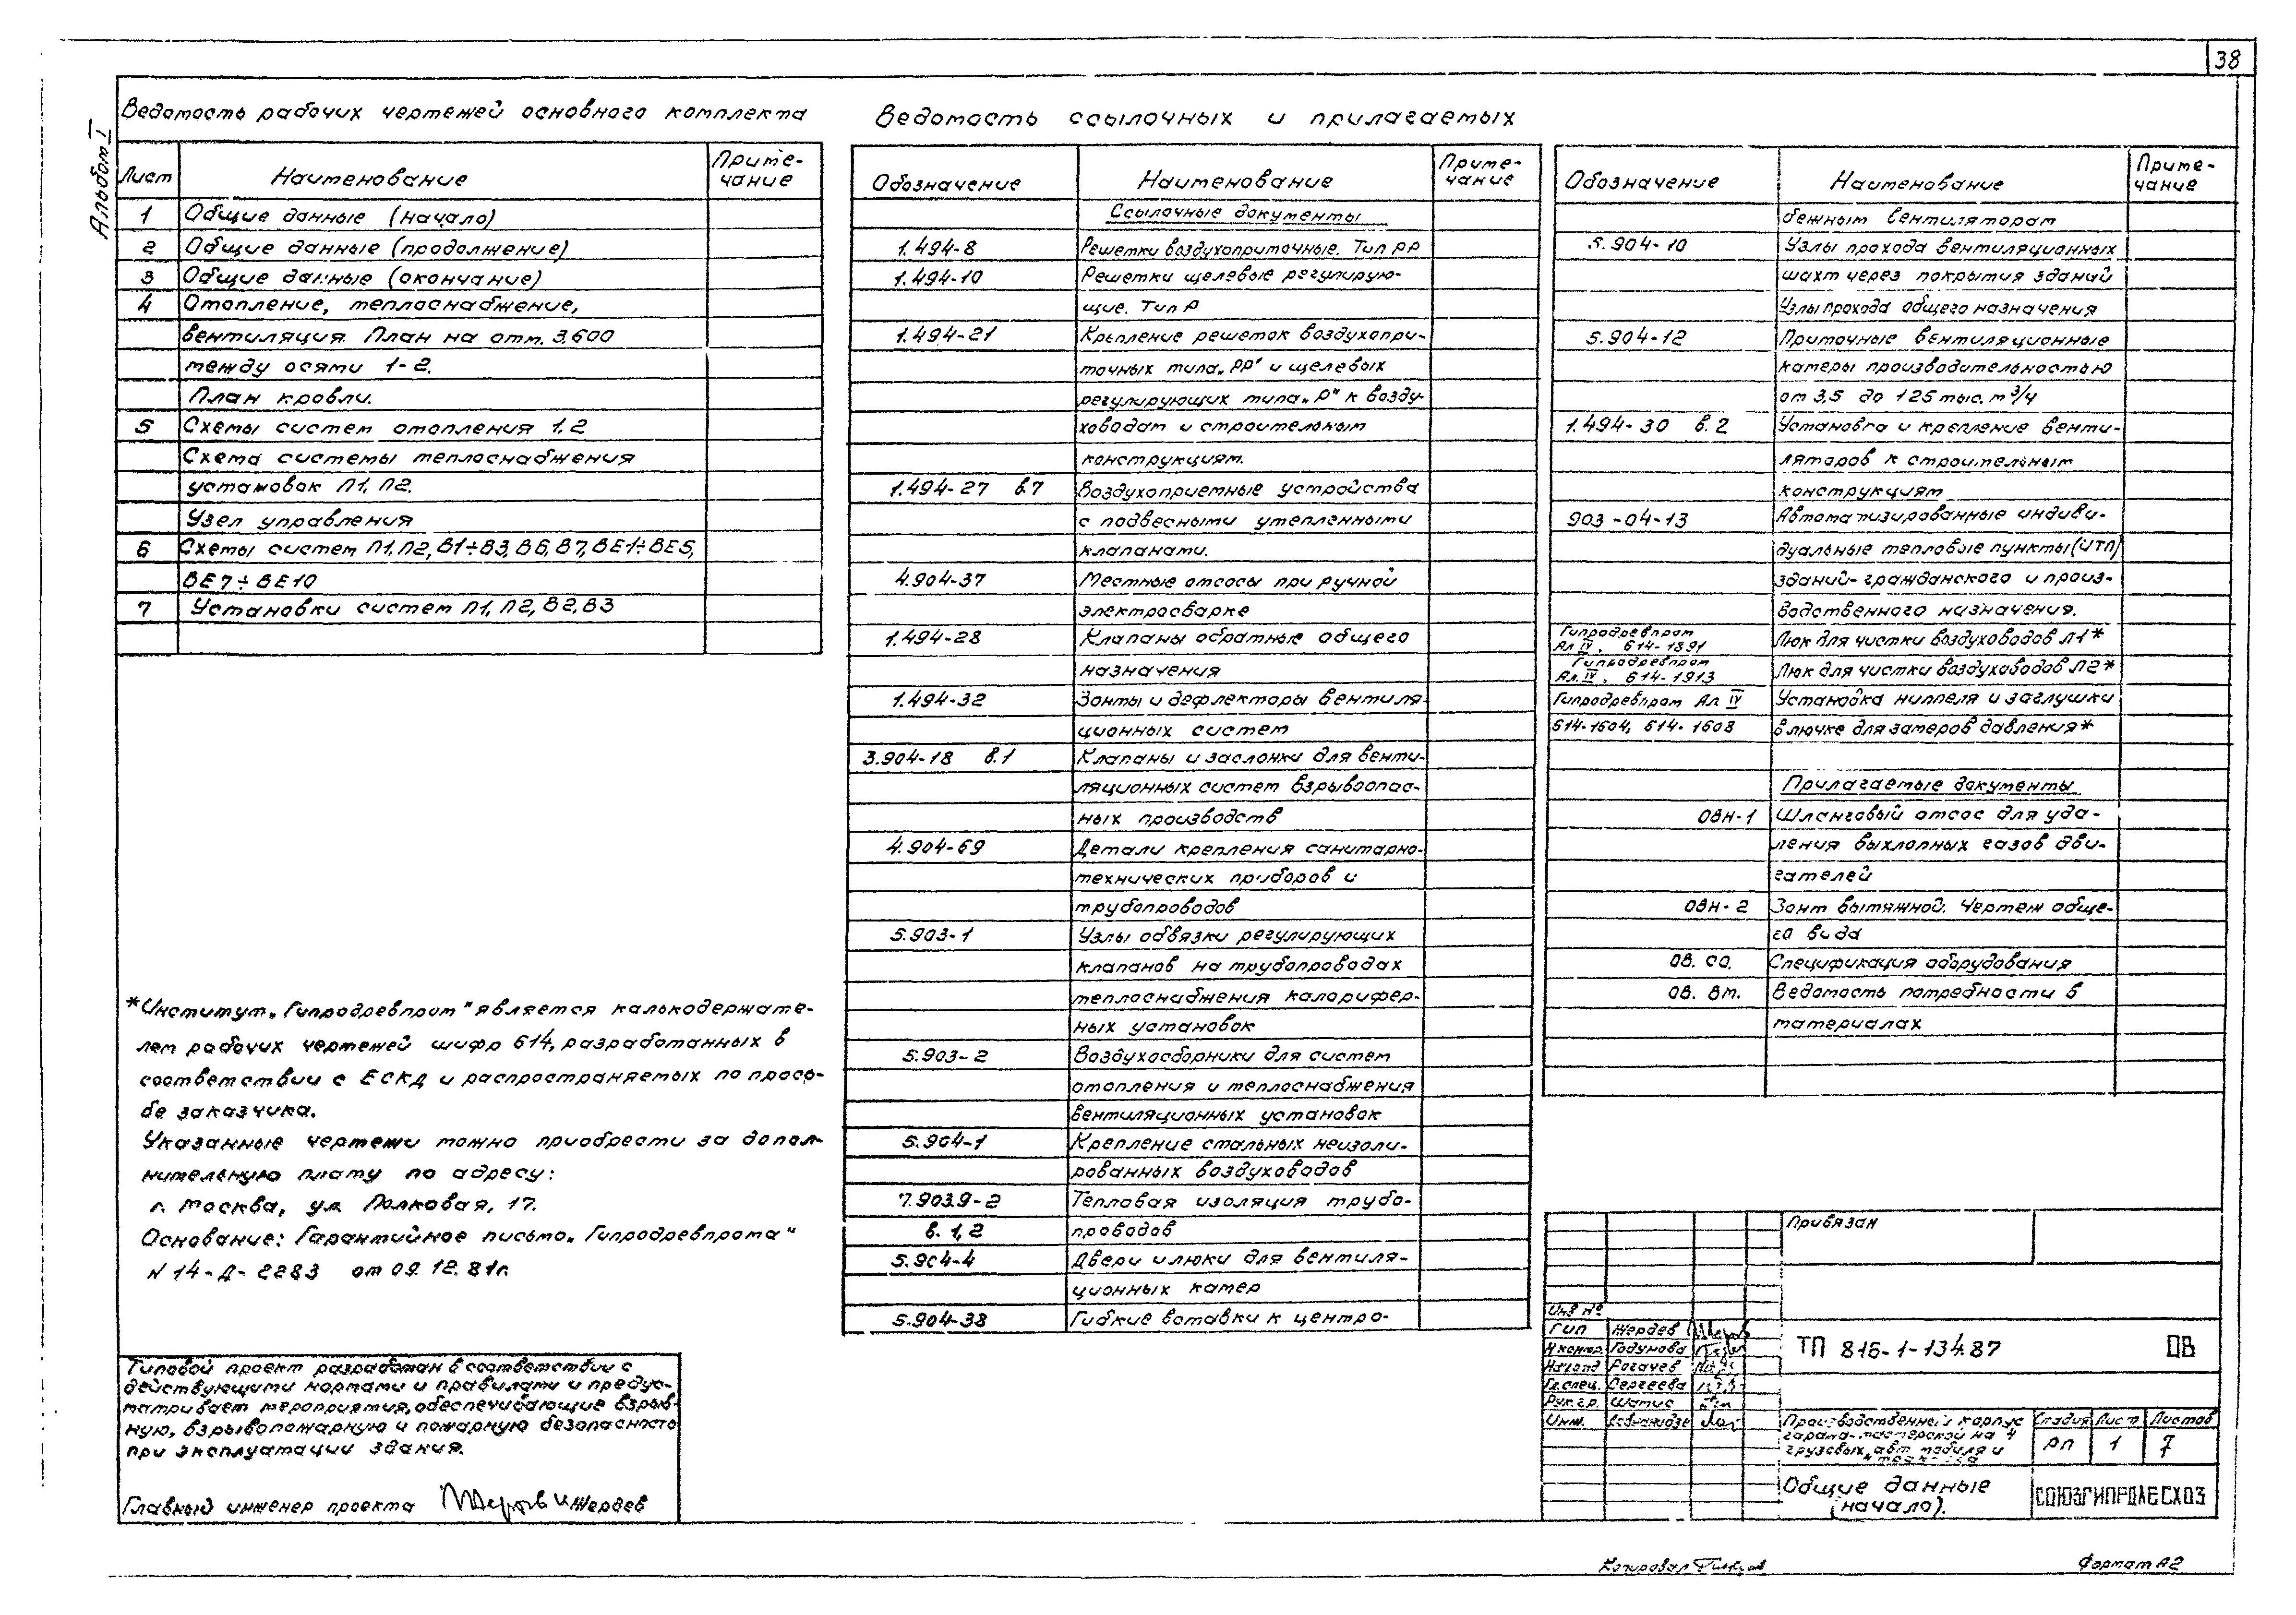 38
Альбом I
Ведомость рабочих чертежей основного комплекта
Лист Наименование Приме-
чание
1 Общие данные (начало)
2 Общие данные (продолжение)
3 Общие данные (окончание)
4 Отопление, теплоснабжение,
вентиляция. План на отм. 3.600
между осями 1-2.
План кровли.
5 Схемы систем отопления 1,2
Схема системы теплоснабжения
установок П1, П2.
Узел управления
6 Схемы систем П1, П2, В1÷В3, В6, В7, ВЕ1÷ВЕ5,
ВЕ7÷ВЕ10
7 Установки систем П1, П2, В2, В3
*Институт „Гипродревпром" является калькодержате-
лем рабочих чертежей шифр 614, разработанных в
соответствии с ЕСКД и распространяемых по прось-
бе заказчика.
Указанные чертежи можно приобрести за допол-
нительную плату по адресу:
г. Москва, ул. Полковая, 17.
Основание: Гарантийное письмо „Гипродревпрома"
N 14-Д-2283 от 09.12.81г.
Типовой проект разработан в соответствии с
действующими нормами и правилами и предус-
матривает мероприятия, обеспечивающие взрыв-
ную, взрывопожарную и пожарную безопасность
при эксплуатации здания.
Главный инженер проекта Жердев
Ведомость ссылочных и прилагаемых
Обозначение Наименование Приме-
чание
Ссылочные документы
1.494-8 Решетки воздухоприточные. Тип РР
1.494-10 Решетки щелевые регулирую-
щие. Тип Р
1.494-21 Крепление решеток воздухопри-
точных типа „РР" и щелевых
регулирующих типа „Р" к возду-
ховодам и строительным
конструкциям.
1.494-27 в.7 Воздухоприемные устройства
с подвесными утепленными
клапанами.
4.904-37 Местные отсосы при ручной
электросварке
1.494-28 Клапаны обратные общего
назначения
1.494-32 Зонты и дефлекторы вентиля-
ционных систем
3.904-18 в.1 Клапаны и заслонки для венти-
ляционных систем взрывоопас-
ных производств
4.904-69 Детали крепления санитарно-
технических приборов и
трубопроводов
5.903-1 Узлы обвязки регулирующих
клапанов на трубопроводах
теплоснабжения калорифер-
ных установок
5.903-2 Воздухосборники для систем
отопления и теплоснабжения
вентиляционных установок
5.904-1 Крепление стальных неизоли-
рованных воздуховодов
7.903.9-2 Тепловая изоляция трубо-
в. 1,2 проводов
5.904-4 Двери и люки для вентиля-
ционных камер
5.904-38 Гибкие вставки к центро-
Обозначение Наименование Приме-
чание
бежным вентиляторам
5.904-10 Узлы прохода вентиляционных
шахт через покрытия зданий
Узлы прохода общего назначения
5.904-12 Приточные вентиляционные
камеры производительностью
от 3,5 до 125 тыс. м³/ч
1.494-30 в.2 Установка и крепление венти-
ляторов к строительным
конструкциям
903-04-13 Автоматизированные индиви-
дуальные тепловые пункты (ИТП)
зданий гражданского и произ-
водственного назначения.
Гипродревпром
Ал IV. 614-1891 Люк для чистки воздуховодов Л1*
Гипродревпром
Ал. IV. 614-1913 Люк для чистки воздуховодов Л2*
Гипродревпром Ал IV Установка ниппеля и заглушки
614-1604, 614-1608 в лючке для замеров давления*
Прилагаемые документы
ОВН-1 Шланговый отсос для уда-
ления выхлопных газов дви-
гателей
ОВН-2 Зонт вытяжной. Чертеж обще-
го вида
ОВ. СО. Спецификация оборудования
ОВ. ВМ. Ведомость потребности в
материалах
Привязан
Инв №
ГИП Жердев
Н.контр. Годунова
Нач.отд Рогачев
Гл.спец. Сергеева
Рук.гр. Шапис
Инж.
ТП 816-1-134.87 ОВ
Производственный корпус
гаража-мастерской на 4
грузовых автомобиля и
Стадия Лист Листов
РП 1 7
Общие данные
(начало).
СОЮЗГИПРОЛЕСХОЗ
Копировал
Формат А2